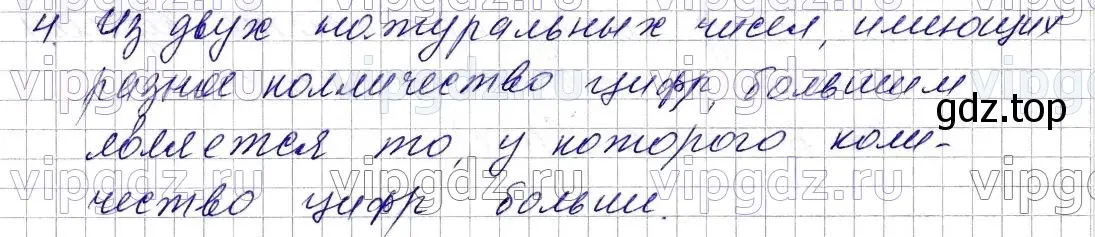 4. Из двух натуральных чисел, имеющих
разное колличество цифр, большим
является то, у которого коли-
чество цифр больши.
gdz.top
vipgdz.ru vipgdz.ru vipgdz.ru vipgdz.ru